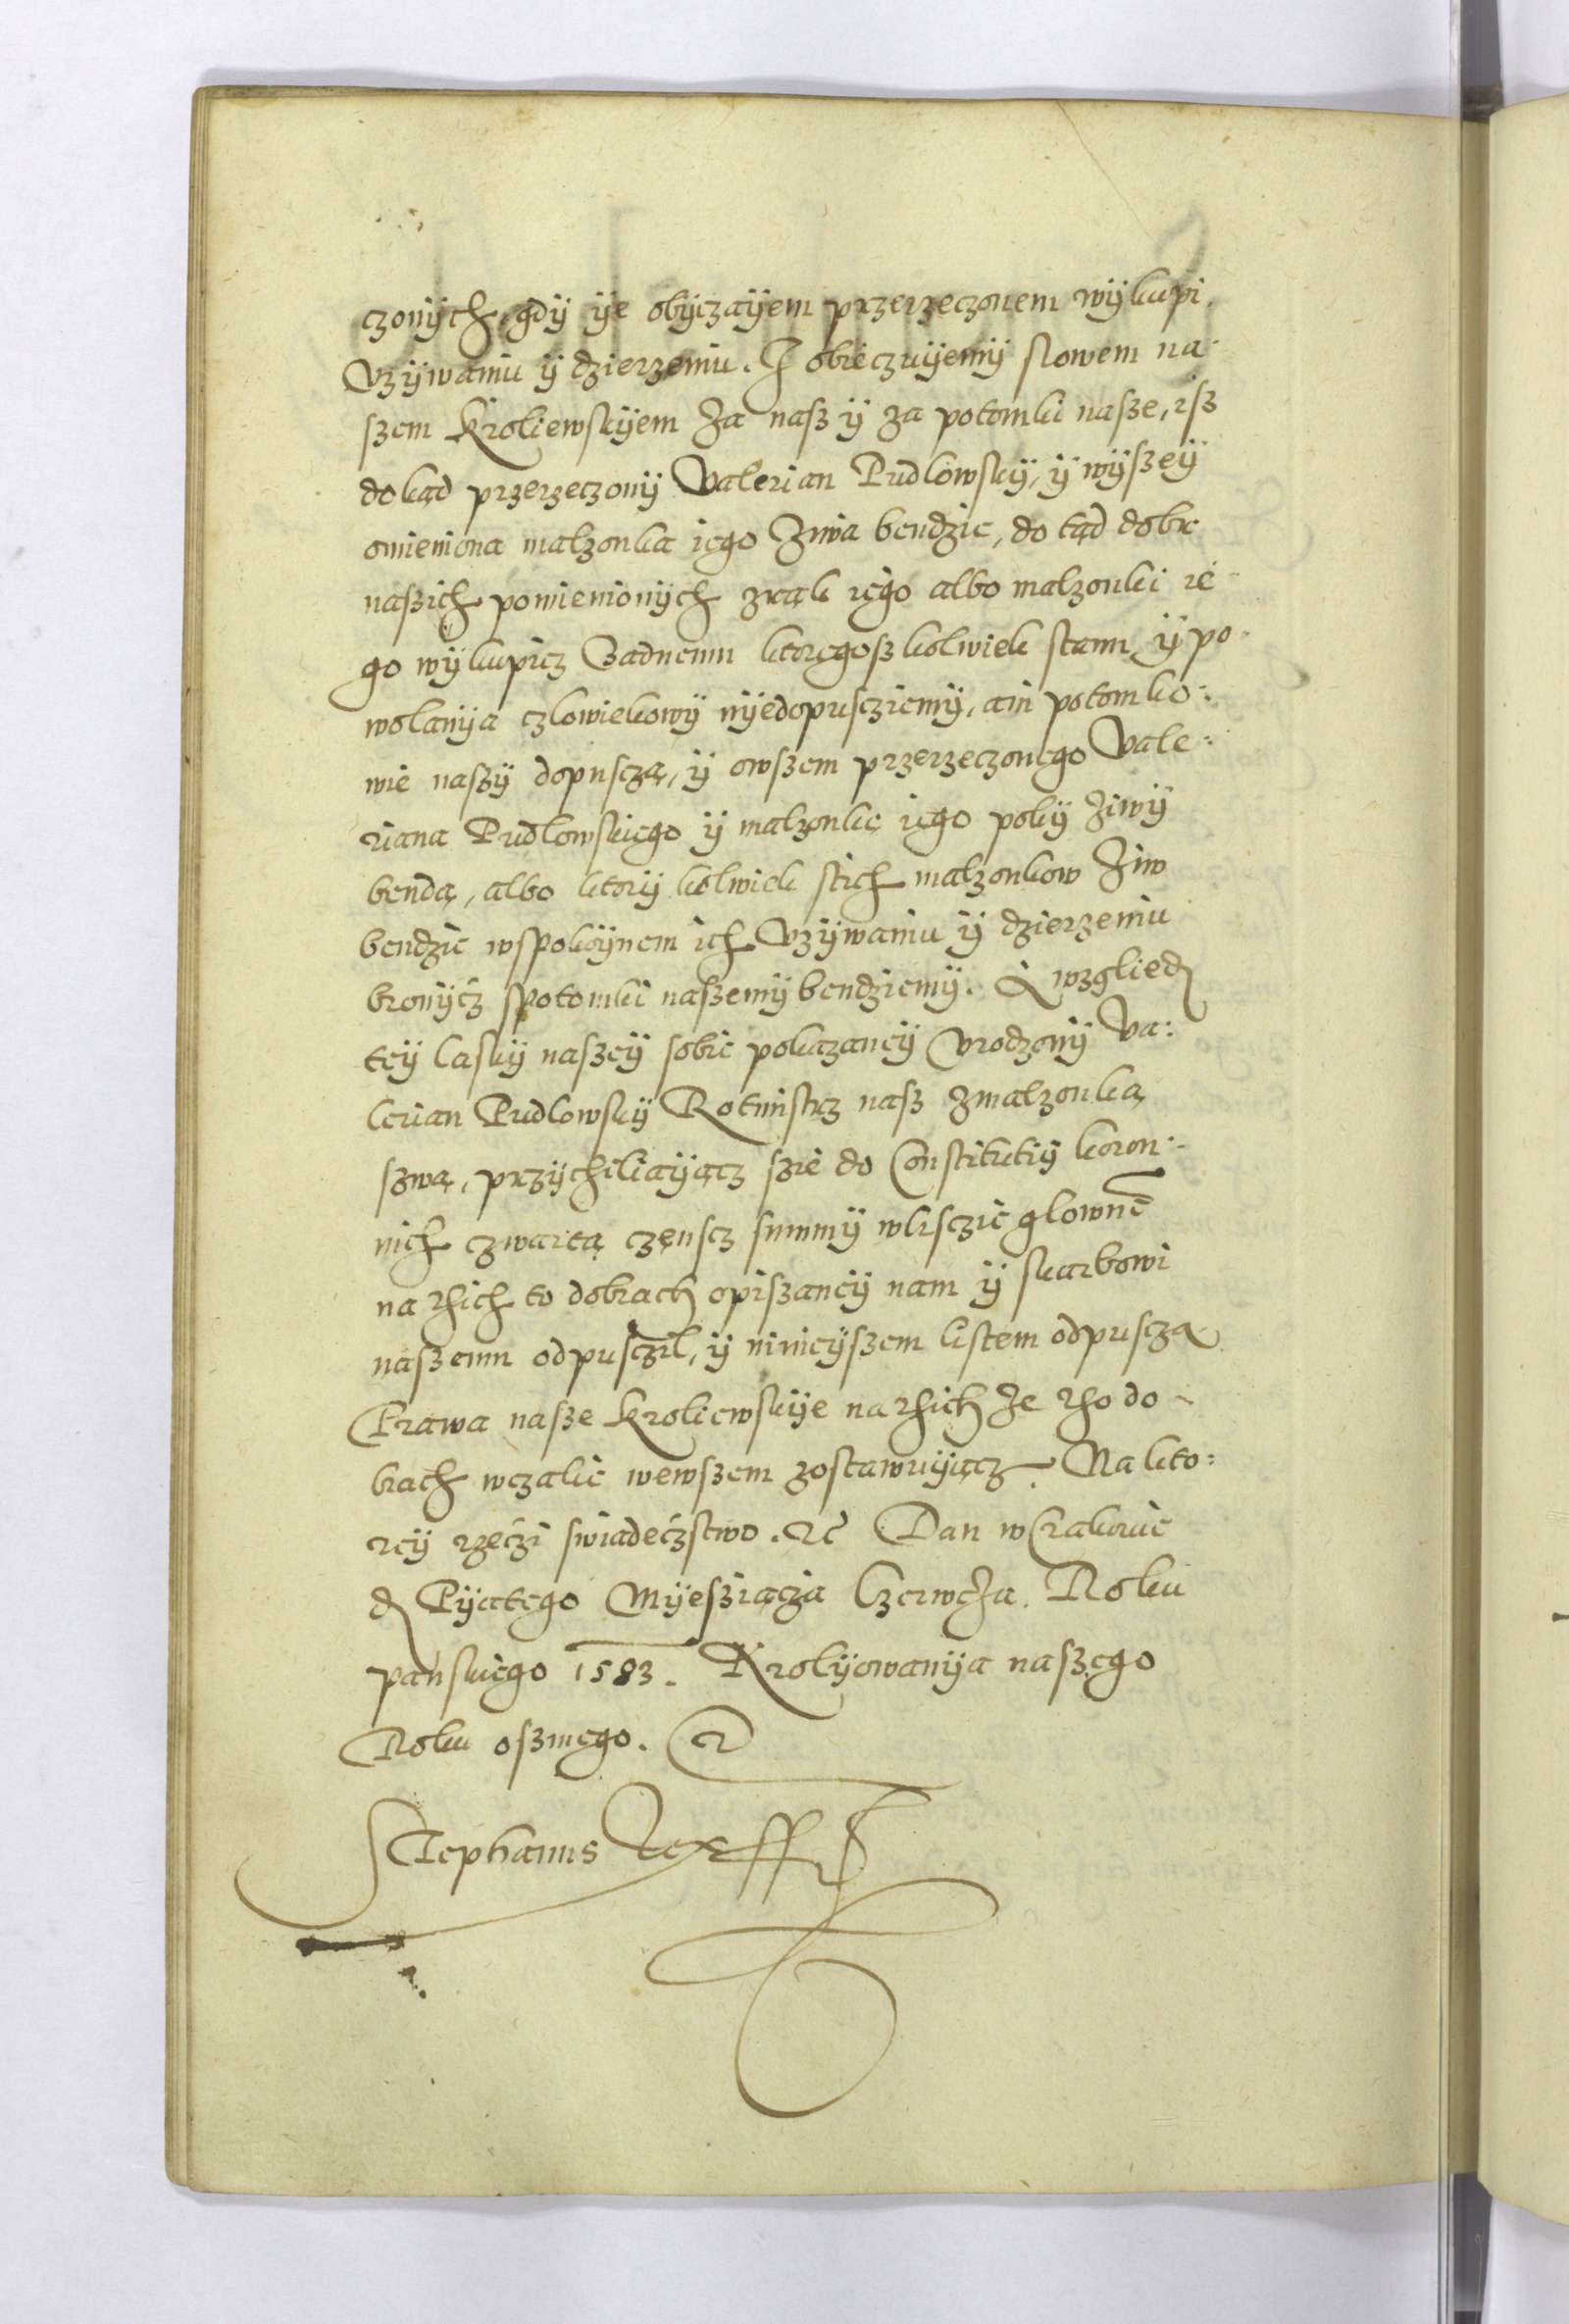 czonÿch, gdÿ ÿe obÿczaÿem przerzeczonem wÿkupi.
Vzÿwaniu ÿ dzierzeniu. I obieczuÿemÿ slowem na-
szem Kroliewskÿem Za nasz ÿ za potomki nasze, isz
dokąd przerzeczonÿ Valerian Pudlowskÿ, ÿ wÿszeÿ
omieniona malzonka iego Zÿwa bendzie, do tąd dobr
naszich pomienionÿch zrąk iego albo malzonki ie-
go wÿkupicz Zadnemu ktoregosz kolwiek stanu, ÿ po-
wolanÿa czlowiekowÿ nÿedopuscziemÿ, ani potomko:
wie naszÿ dopuscza, ÿ owszem przerzeczonego Vale:
riana Pudlowskiego ÿ malzonke iego pokÿ Ziwÿ
benda, albo ktorÿ kolwiek stich malzonkow Ziw
bendzie wspokoÿnem ich Vzÿwaniu ÿ dzierzeniu
bronÿcz spotomki naszemÿ bendziemÿ. A wzgliedem
teÿ laskÿ naszeÿ sobie pokazaneÿ Vrodzonÿ Va:
lerian Pudlowskÿ Rotmistrz nasz zmalzonką
szwą, przÿchiliaÿącz szie do Constitutiÿ koron:
nich czwartą częnscz summÿ wlisczie glownē
na thich to dobrach opiszaneÿ nam ÿ skarbowi
naszemu odpusczil, ÿ ninieÿszem listem odpuscza
Prawa nasze Kroliewskÿe na thich Ze tho do-
brach wczalie wewszem zostawuÿącz. Na kto:
reÿ rzeczi swiadeczstwo. ec Dan wCrakowie
d Pÿątego Mÿesziącza Czerwcza. Roku
panskiego 1583. Krolÿowanÿa naszego
Roku oszmego.
Stephanus Rex ff